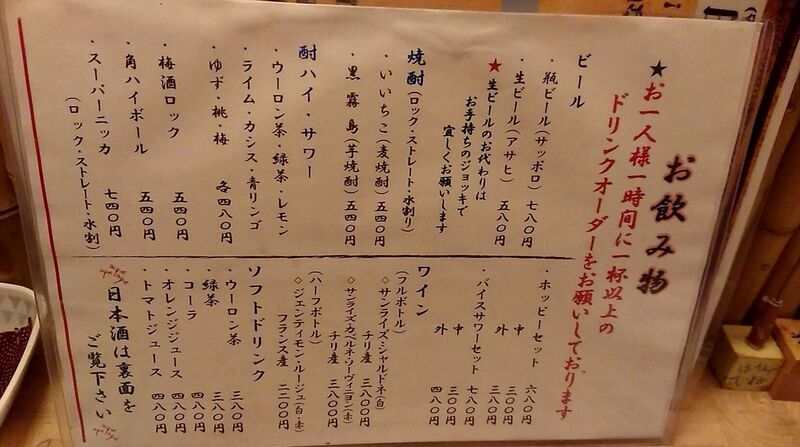 お飲み物
★お一人様一時間に一杯以上の
ドリンクオーダーをお願いしております
ビール
・瓶ビール(サッポロ) 七八〇円
・生ビール(アサヒ) 五八〇円
★生ビールのお代わりは
お手持ちのジョッキで
宜しくお願いします
焼酎(ロック・ストレート・水割り)
・いいちこ(麦焼酎) 五四〇円
・黒霧島(芋焼酎) 五四〇円
酎ハイ・サワー
・ウーロン茶・緑茶・レモン
・ライム・カシス・青リンゴ
・ゆず・桃・梅 各四八〇円
・梅酒ロック 五四〇円
・角ハイボール 五四〇円
・スーパーニッカ 七四〇円
(ロック・ストレート・水割)
・ホッピーセット 六八〇円
中 三〇〇円
外 三八〇円
・バイスサワーセット 七八〇円
中 三〇〇円
外 四八〇円
ワイン
(フルボトル)
◇サンライズ・シャルドネ(白)
チリ産 三八〇〇円
◇サンライズ・カベルネ・ソーヴィニヨン(赤)
チリ産 三八〇〇円
(ハーフボトル)
◇ジェンティモン・ルージュ(白・赤)
フランス産 二二〇〇円
ソフトドリンク
・ウーロン茶 三八〇円
・緑茶 三八〇円
・コーラ 四八〇円
・オレンジジュース 四八〇円
・トマトジュース 四八〇円
日本酒は裏面を
ご覧下さい